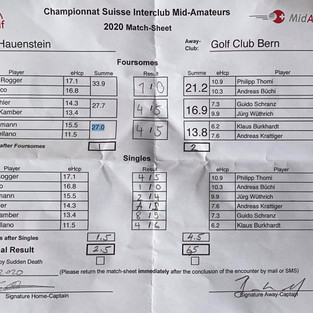 Championnat Suisse Interclub Mid-Amateurs
2020 Match-Sheet
MidA
Hauenstein
Away-Club: Golf Club Bern
Foursomes
Player eHcp Summe Result Summe eHcp Player
Rogger 17.1 33.9 1 0 21.2 10.9 Philipp Thomi
co 16.8 10.3 Andreas Büchi
hler 14.3 27.7 4 5 16.9 7.3 Guido Schranz
Kamber 13.4 9.9 Jürg Wüthrich
mann 15.5 27.0 4 5 13.8 6.2 Klaus Burkhardt
ellano 11.5 7.6 Andreas Krattiger
after Foursomes 1 2
Singles
Player eHcp Result eHcp Player
Rogger 17.1 4 5 10.9 Philipp Thomi
co 16.8 1 0 10.3 Andreas Büchi
mann 15.5 2 4 9.9 Jürg Wüthrich
er 14.3 A S 7.6 Andreas Krattiger
Kamber 13.4 8 5 7.3 Guido Schranz
ellano 11.5 4 6.2 Klaus Burkhardt
s after Singles 1.5 4.5
al Result 2.5 6.5
by Sudden Death
2020 (Please return the match-sheet immediately after the conclusion of the encounter by mail or SMS)
Signature Home-Captain Signature Away-Captain